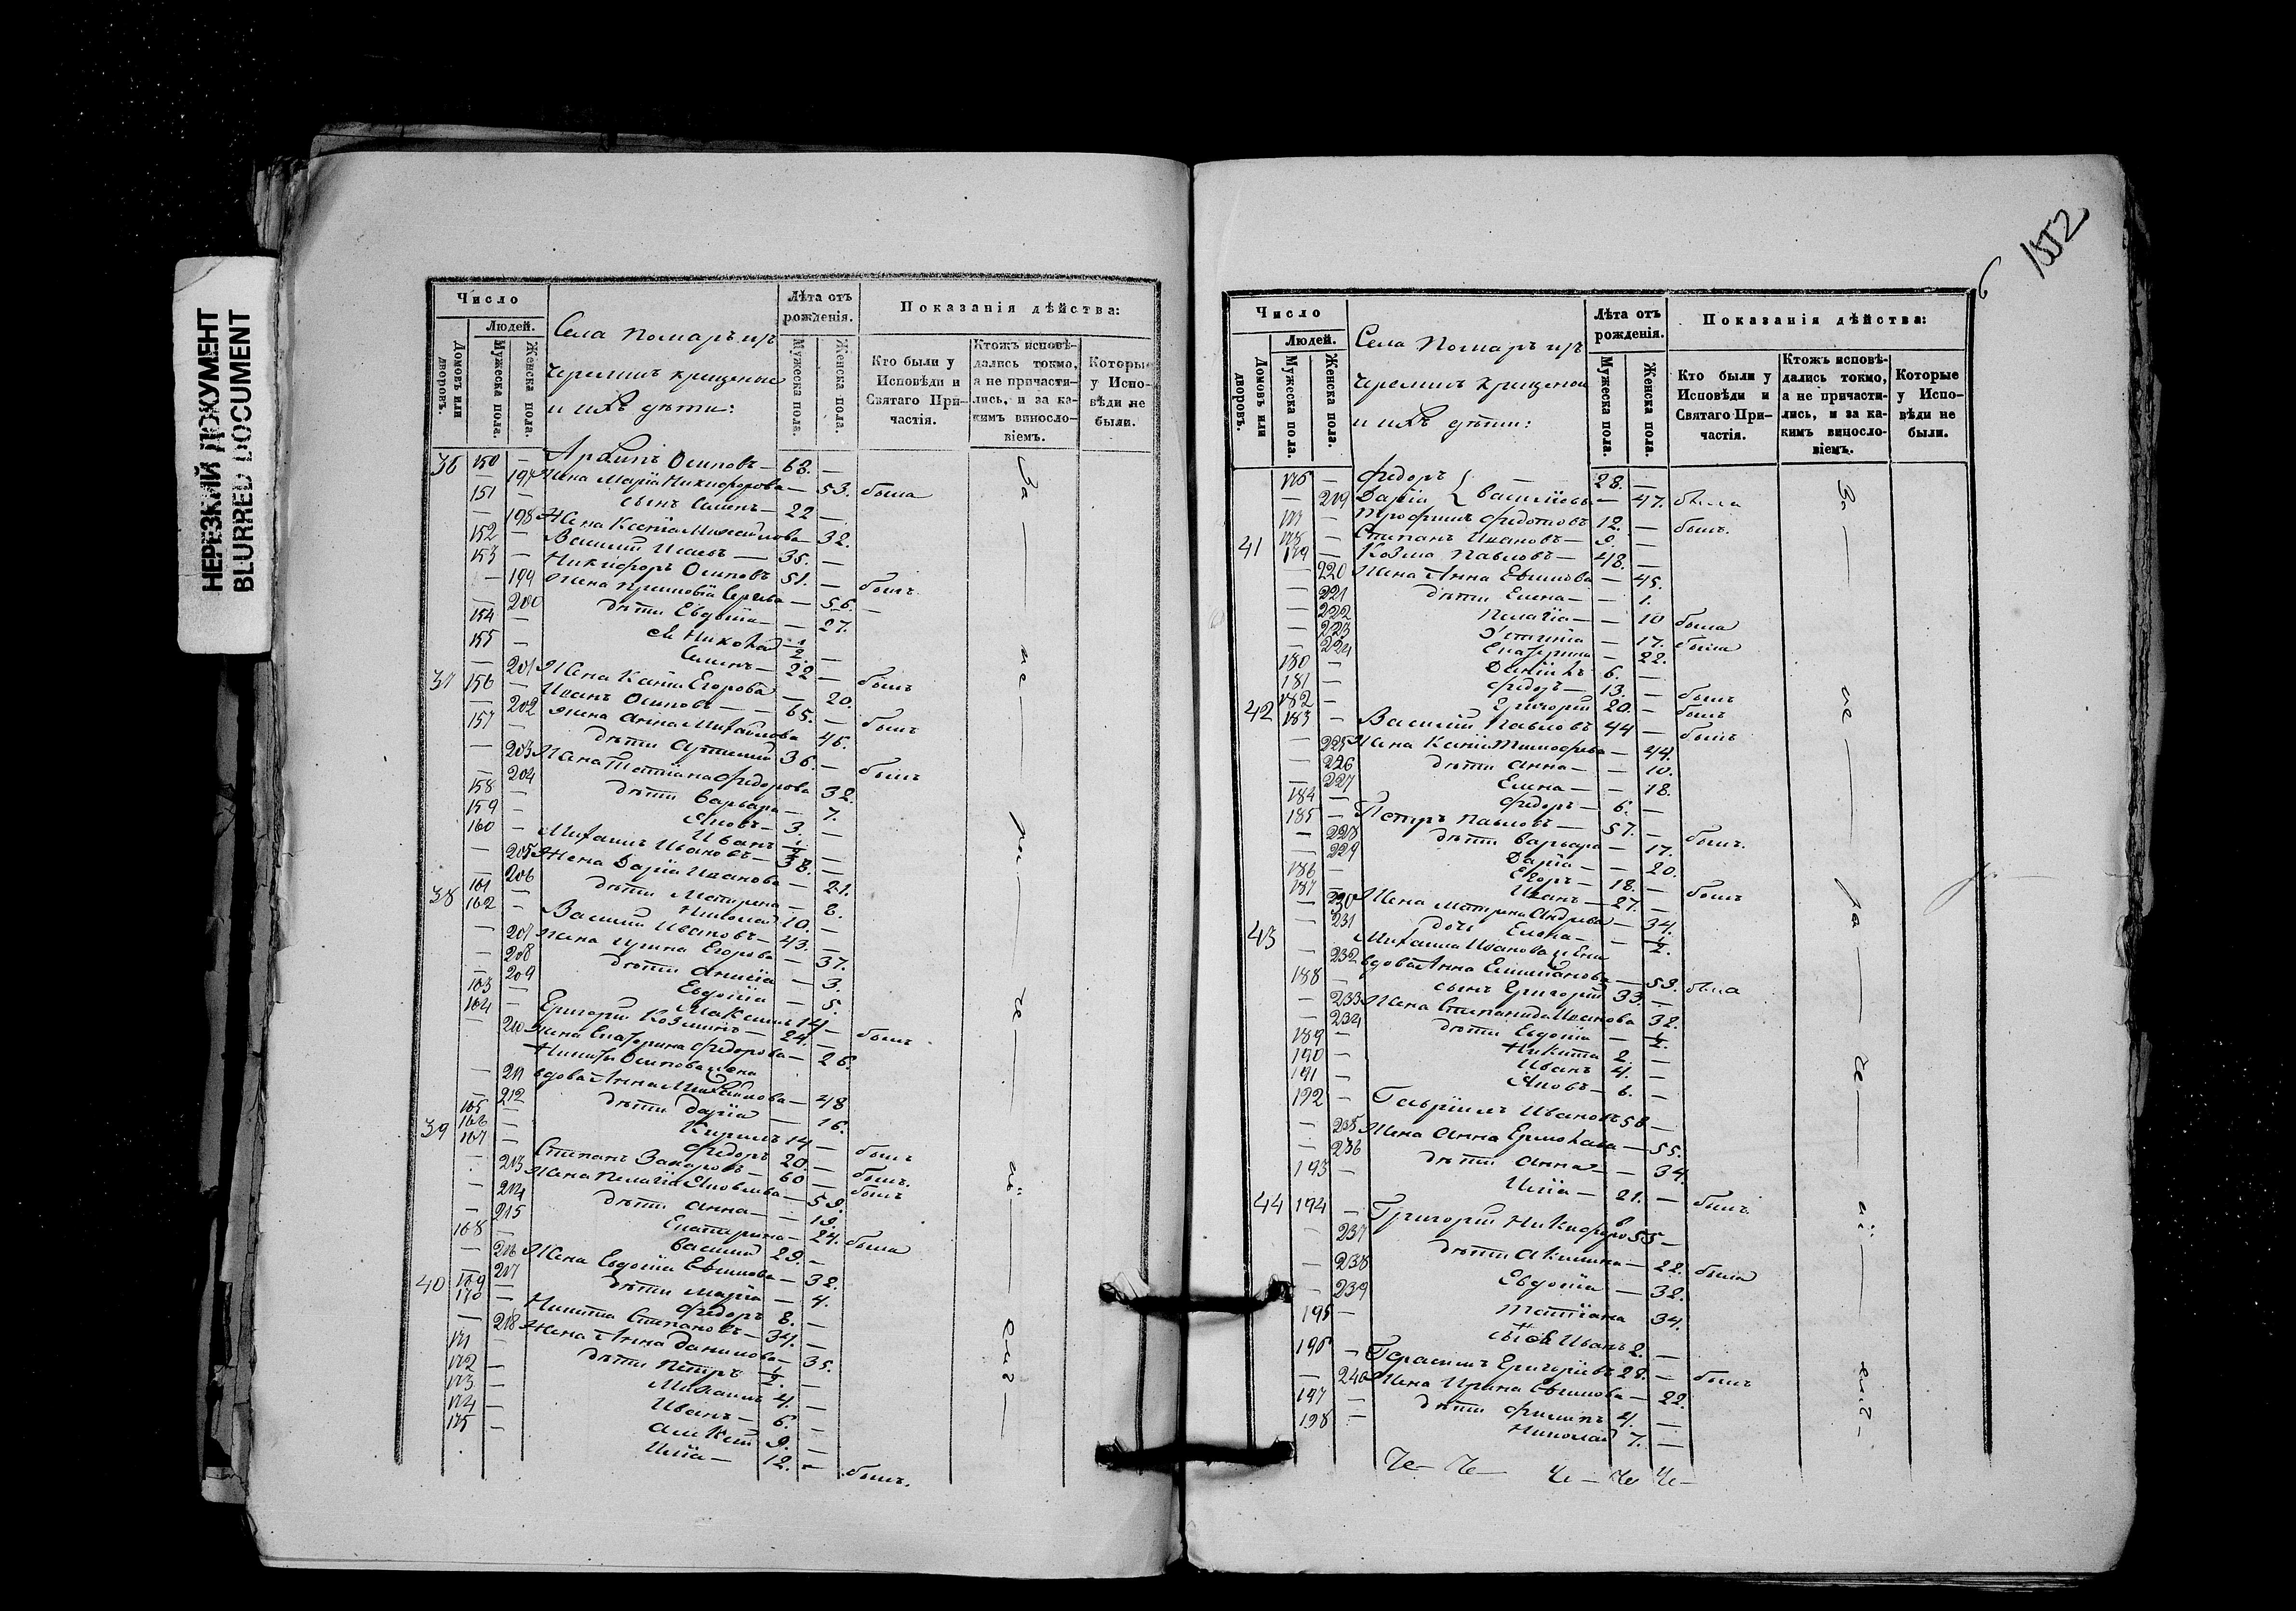 НЕРЕЗКИЙ ДОКУМЕНТ
BLURRED DOCUMENT
Число
Людей.
Домовъ или дворовъ.
Мужеска пола.
Женска пола.
Села Помаръ изъ
черемисъ крещеные
и ихъ дѣти:
Лѣта отъ рожденія.
Мужеска пола.
Женска пола.
Показанія дѣйства:
Кто были у Исповѣди и Святаго Причастія.
Ктожъ исповѣдались токмо, а не причастились, и за какимъ винословіемъ.
Которые у Исповѣди не были.
36 150 — Архипъ Осиповъ — 63. —
— 197 Жена Марія Никифорова — 53. была
151 — сынъ Семенъ — 22 —
— 198 Жена Ксенія Михайлова — 32.
152 — Василій Исаевъ — 35. —
153 — Никифоръ Осиповъ 51. — былъ
— 199 Жена — 56. —
— 200 дѣти Евдокія — — 27.
154 — Николай 1/2 —
155 — Семенъ — 22 — былъ
— 201 Жена Егорова — 20.
37 156 — Иванъ Осиповъ — — 65. — былъ
— 202 Жена Анна Михайлова 46.
157 — дѣти 36. — былъ
— 203 Жена Татіана Федорова 32.
— 204 дѣти Варвара — 7.
158 — Яковъ — 3. —
159 — Иванъ 1/2 —
160 — Михаилъ Ивановъ — 38. —
— 205 Жена Дарія Иванова — 21.
— 206 дѣти Матрена — 8.
161 — Николай 10. —
38 162 — Василій Ивановъ — 43. —
— 207 Жена Ирина Егорова — 37.
— 208 дѣти — 3.
— 209 Евдокія — 5.
163 — Максимъ 14 —
164 — Григорій Козминъ — 24. — былъ
— 210 Жена Екатерина Федорова — 26.
Никиты Осипова жена
— 211 вдова Анна Михайлова — 48
— 212 дѣти Дарія — 16.
165 — Кирилъ 14 — былъ
166 — Федоръ 20. — былъ.
39 167 — Степанъ Захаровъ — 60 — былъ
— 213 Жена Пелагія Яковлева — 59.
— 214 дѣти Анна — — 19.
— 215 Екатерина — 24. была
168 — Василій 29. —
— 216 Жена Евдокія Ефимова — 32.
— 217 дѣти Марія — 4.
169 — Федоръ 8. —
40 170 — Никита Степановъ — 34. —
— 218 Жена Анна Данилова — 35.
171 — дѣти Петръ 1/2 —
172 — Михаилъ 4. —
173 — Иванъ — 6. —
174 — Алексѣй 9. —
175 — Илія — 12. — былъ.
За — не — ра — че — ні — емъ —
6
152
Число
Людей.
Домовъ или дворовъ.
Мужеска пола.
Женска пола.
Села Помаръ изъ
черемисъ крещеные
и ихъ дѣти:
Лѣта отъ рожденія.
Мужеска пола.
Женска пола.
Показанія дѣйства:
Кто были у Исповѣди и Святаго Причастія.
Ктожъ исповѣдались токмо, а не причастились, и за какимъ винословіемъ.
Которые у Исповѣди не были.
176 — Федоръ 28. —
— 219 Дарія } Васильевы — 47. была
177 — Трофимъ Федотовъ 12. — былъ.
178 — Степанъ Ивановъ — 9. —
41 179 — Козма Павловъ — 48. —
— 220 Жена Анна Ефимова — 45.
— 221 дѣти Елена — — 1.
— 222 Пелагія — — 10 была
— 223 — 17. была
— 224 Екатерина — 22.
180 — Даніилъ 6. —
181 — Федоръ — 13. — былъ
182 — Григорій 20. — былъ
42 183 — Василій Павловъ 44 — былъ
— 225 Жена Ксенія Тимофеева — 44.
— 226 дѣти Анна — — 10.
— 227 Елена — — 18.
184 — Федоръ — 6. —
185 — Петръ Павловъ — 57. — былъ.
— 228 дѣти Варвара — 17.
— 229 Дарія — — 20.
186 — Егоръ — 18. — былъ
187 — Иванъ — 27. —
— 230 Жена Матрена Андреева — 34.
— 231 дочь Елена — — 1/2.
43 Михаила Иванова жена
— 232 вдова Анна — 53. была
188 — сынъ Григорій 33. —
— 233 Жена Степанида Иванова 32.
— 234 дѣти Евдокія — 1/2.
189 — Никита 2. —
190 — Иванъ 4. —
191 — Яковъ — 6. —
192 — Гавріилъ Ивановъ 58 —
— 235 Жена Анна Ермолаева — 55.
— 236 дѣти Анна — — 34.
193 — Илія — 21. — былъ.
44 194 — Григорій Никифоровъ 55 —
— 237 дѣти Акилина — 22. была
— 238 Евдокія — 32.
— 239 Татіана 34.
195 — сынъ Иванъ 2. —
196 — Герасимъ Григорьевъ 28. — былъ
— 240 Жена Ирина Ефимова — 22.
197 — дѣти Филипъ 4. —
198 — Николай 7. —
За — не — ра — че — ні — емъ —
Че — Че — Че — Че Че —